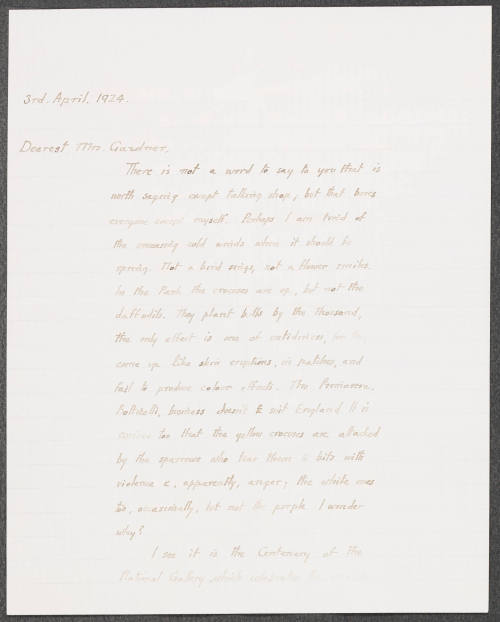 3rd. April, 1924.
Dearest Mrs. Gardner,
There is not a word to say to you that is
worth saying except talking shop, but that bores
everyone except myself. Perhaps I am tired of
the unceasing cold winds when it should be
spring. Not a bird sings, not a flower smiles.
In the Park the crocuses are up, but not the
daffodils. They plant bulbs by the thousand,
the only effect is one of untidiness, for they
come up like skin eruptions, in patches, and
fail to produce colour effects. The Primavera,
Botticelli, business doesn't suit England. It is
curious too that the yellow crocuses are attacked
by the sparrows who tear them to bits with
violence &, apparently, anger; the white ones
too, occasionally, but not the purple. I wonder
why?
I see it is the Centenary of the
National Gallery, which celebrates the